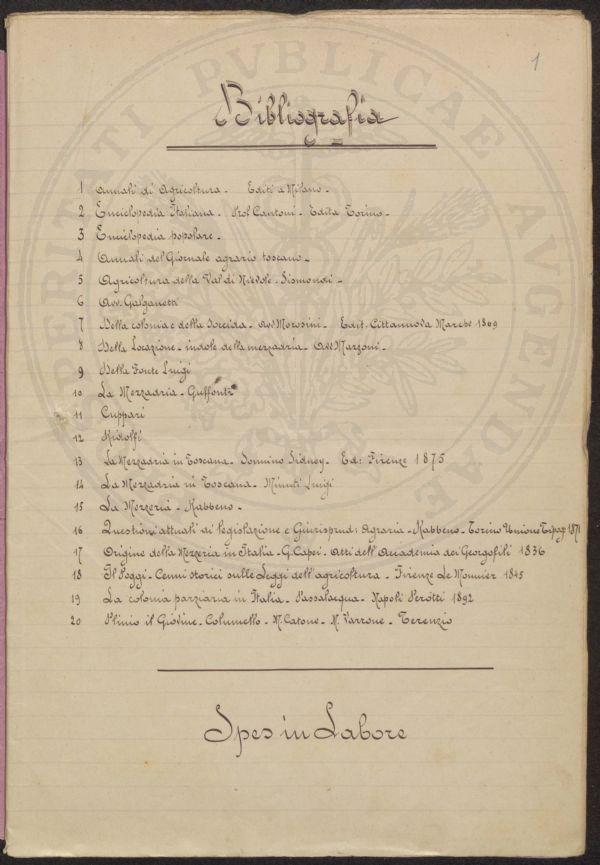 1
Bibliografia
1 Annali di Agricoltura - Editi a Milano -
2 Enciclopedia Italiana - Prof Cantoni - Edita Torino -
3 Enciclopedia popolare -
4 Annali del Giornale agrario toscano -
5 Agricoltura della Val di Nievole - Sismondi -
6 Avv. Galganetti
7 Della colonia e della Soccida - Avv Morosini - Edit. Cittanuova Marche 1869
8 Della Locazione - indole della mezzadria - Avv Marzoni -
9 Della Fonte Luigi
10 La Mezzadria - Guffonti
11 Cuppari
12 Ridolfi
13 La Mezzadria in Toscana - Sonnino Sidney - Ed: Firenze 1875
14 La Mezzadria in Toscana - Minuti Luigi
15 La Mezzeria - Rabbeno -
16 Questioni attuali di legislazione e Giurisprud: Agraria - Rabbeno - Torino Unione Tipog 1871
17 Origine della Mezzeria in Italia - G. Capei - Atti dell'Accademia dei Georgofili 1836
18 Il Poggi - Cenni storici sulle Leggi dell'agricoltura - Firenze Le Monnier 1845
19 La colonia parziaria in Italia - Passalacqua - Napoli Perotti 1892
20 Plinio il Giovine - Columello - M. Catone - M. Varrone - Terenzio
Spes in Labore
PROSPERITATI PVBLICAE AVGENDAE